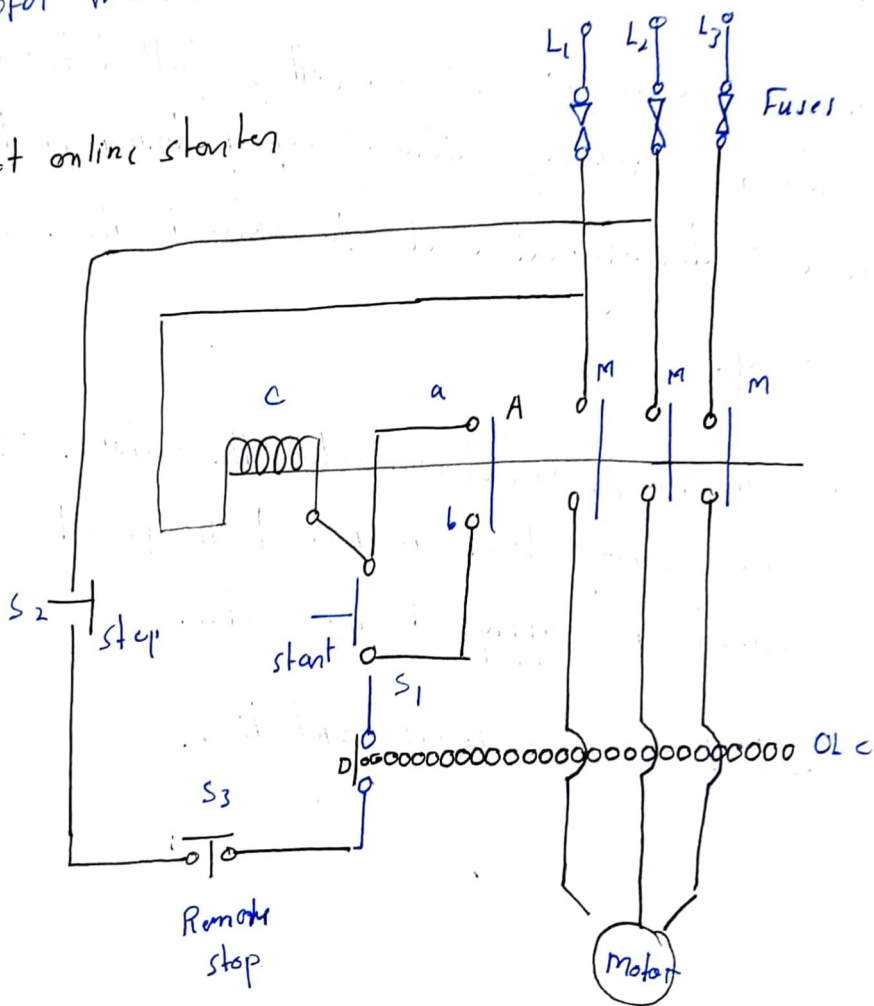 online starter
L1 L2 L3
Fuses
C a A M M M
b
S2
stop
start
S1
D OL C
S3
Remote
stop
Motor